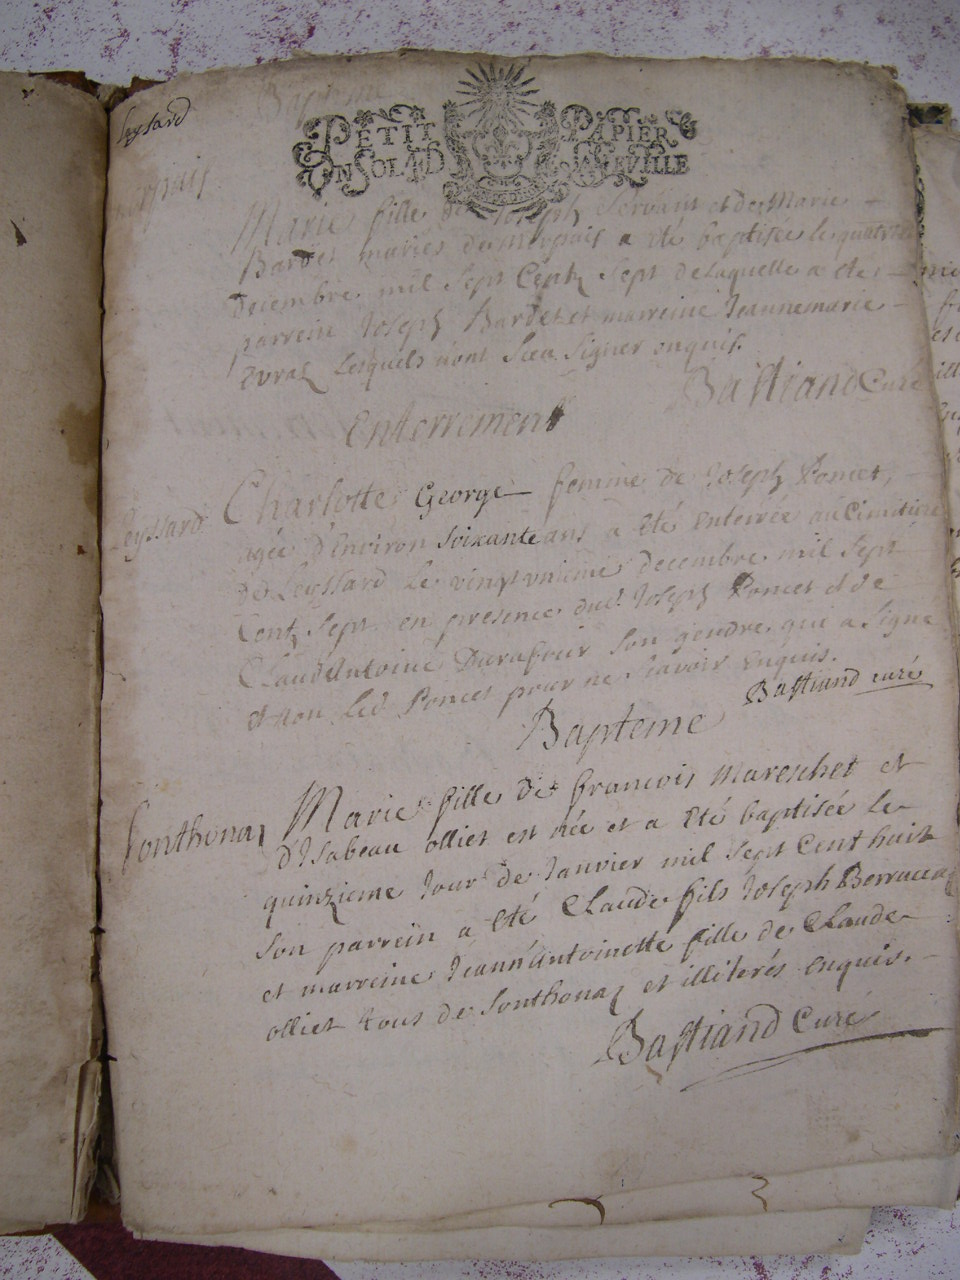 Leyssard
Bapteme
PETIT PAPIER
UN SOL 4D LA FEUILLE
Marie fille de Joseph Servant et de Marie
Bardet mariés du a été baptisée le
decembre mil sept Cent sept de laquelle a été
parrein Joseph Bardet et marreine Jeannemarie
Evraz lesquels n'ont sceu signer enquis.
Bastiand Curé
Enterrement
Leyssard
Charlotte George femme de Joseph Poncet,
agée d'Environ soixante ans a été enterrée au Cimitiere
de Leyssard le vingt unieme decembre mil sept
Cent sept en presence dud. Joseph Poncet et de
Claude Antoine Durafour son gendre qui a signé
et non led. Poncet pour ne scavoir enquis.
Bastiand curé
Bapteme
Sonthonaz
Marie fille de francois Mareschet et
d'Isabeau ollier est née et a été baptisée le
quinzieme Jour de Janvier mil sept Cent huit
son parrein a été Claude fils Joseph
et marreine Jeann'Antoinette fille de Claude
ollier tous de Sonthonaz et illiterés enquis.
Bastiand Curé